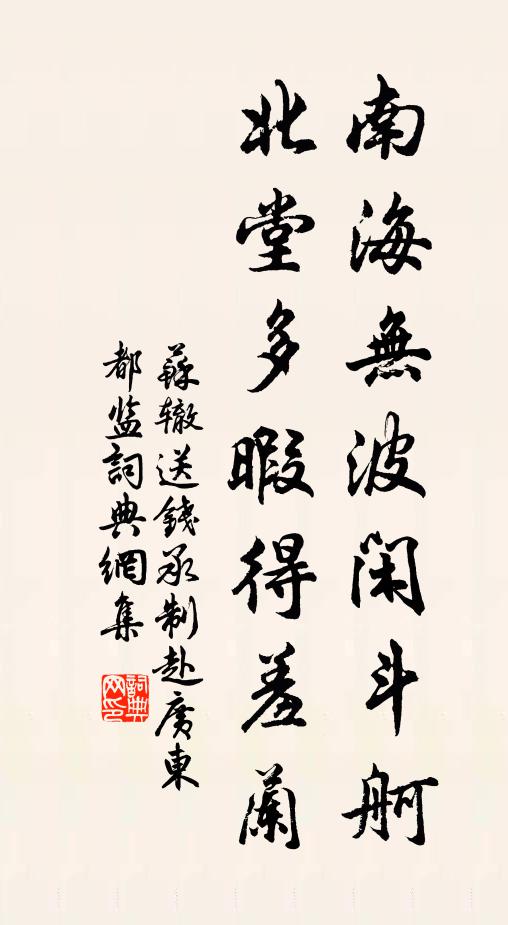 南海無波閑斗舸
北堂多暇得羞蘭
蘇辙送錢承制赴廣東
都监詞典網集
詞典网印